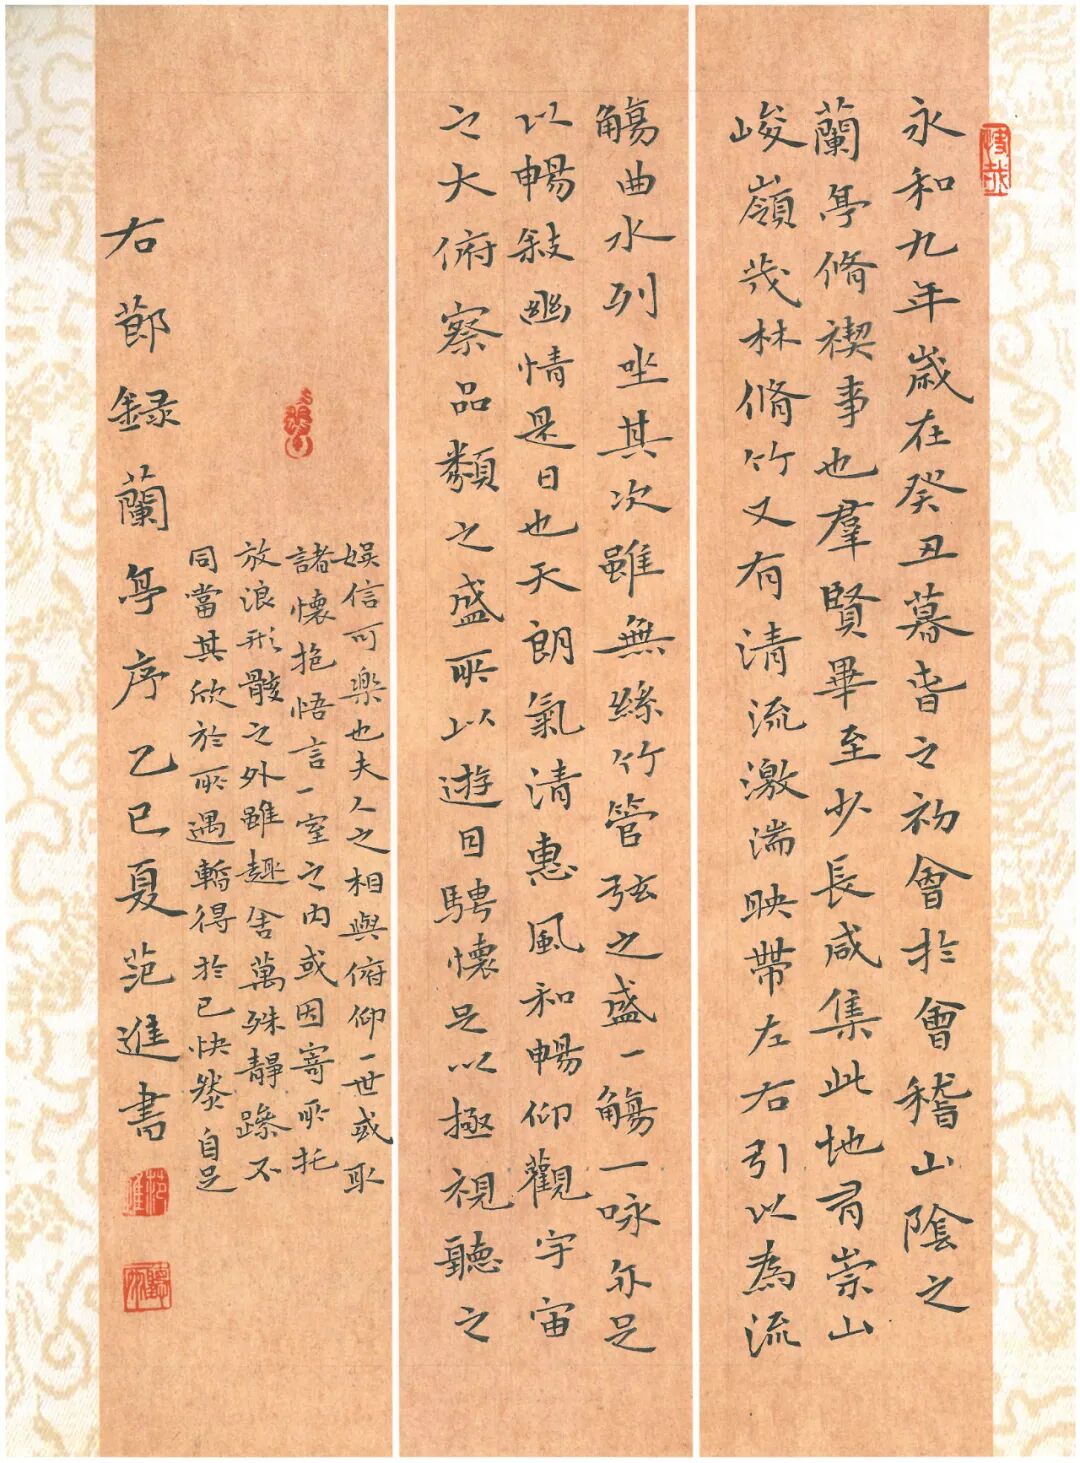 永和九年歲在癸丑暮旾之初會於會稽山陰之
蘭亭脩禊事也羣賢畢至少長咸集此地有崇山
峻嶺茂林脩竹又有清流激湍映帶左右引以為流
觴曲水列坐其次雖無絲竹管弦之盛一觴一咏亦足
以暢敍幽情是日也天朗氣清惠風和暢仰觀宇宙
之大俯察品類之盛所以遊目騁懷足以極視聽之
娛信可樂也夫人之相與俯仰一世或取
諸懷抱悟言一室之內或因寄所托
放浪形骸之外雖趣舍萬殊靜躁不
同當其欣於所遇暫得於己快然自足
右節錄蘭亭序乙巳夏范進書
范進